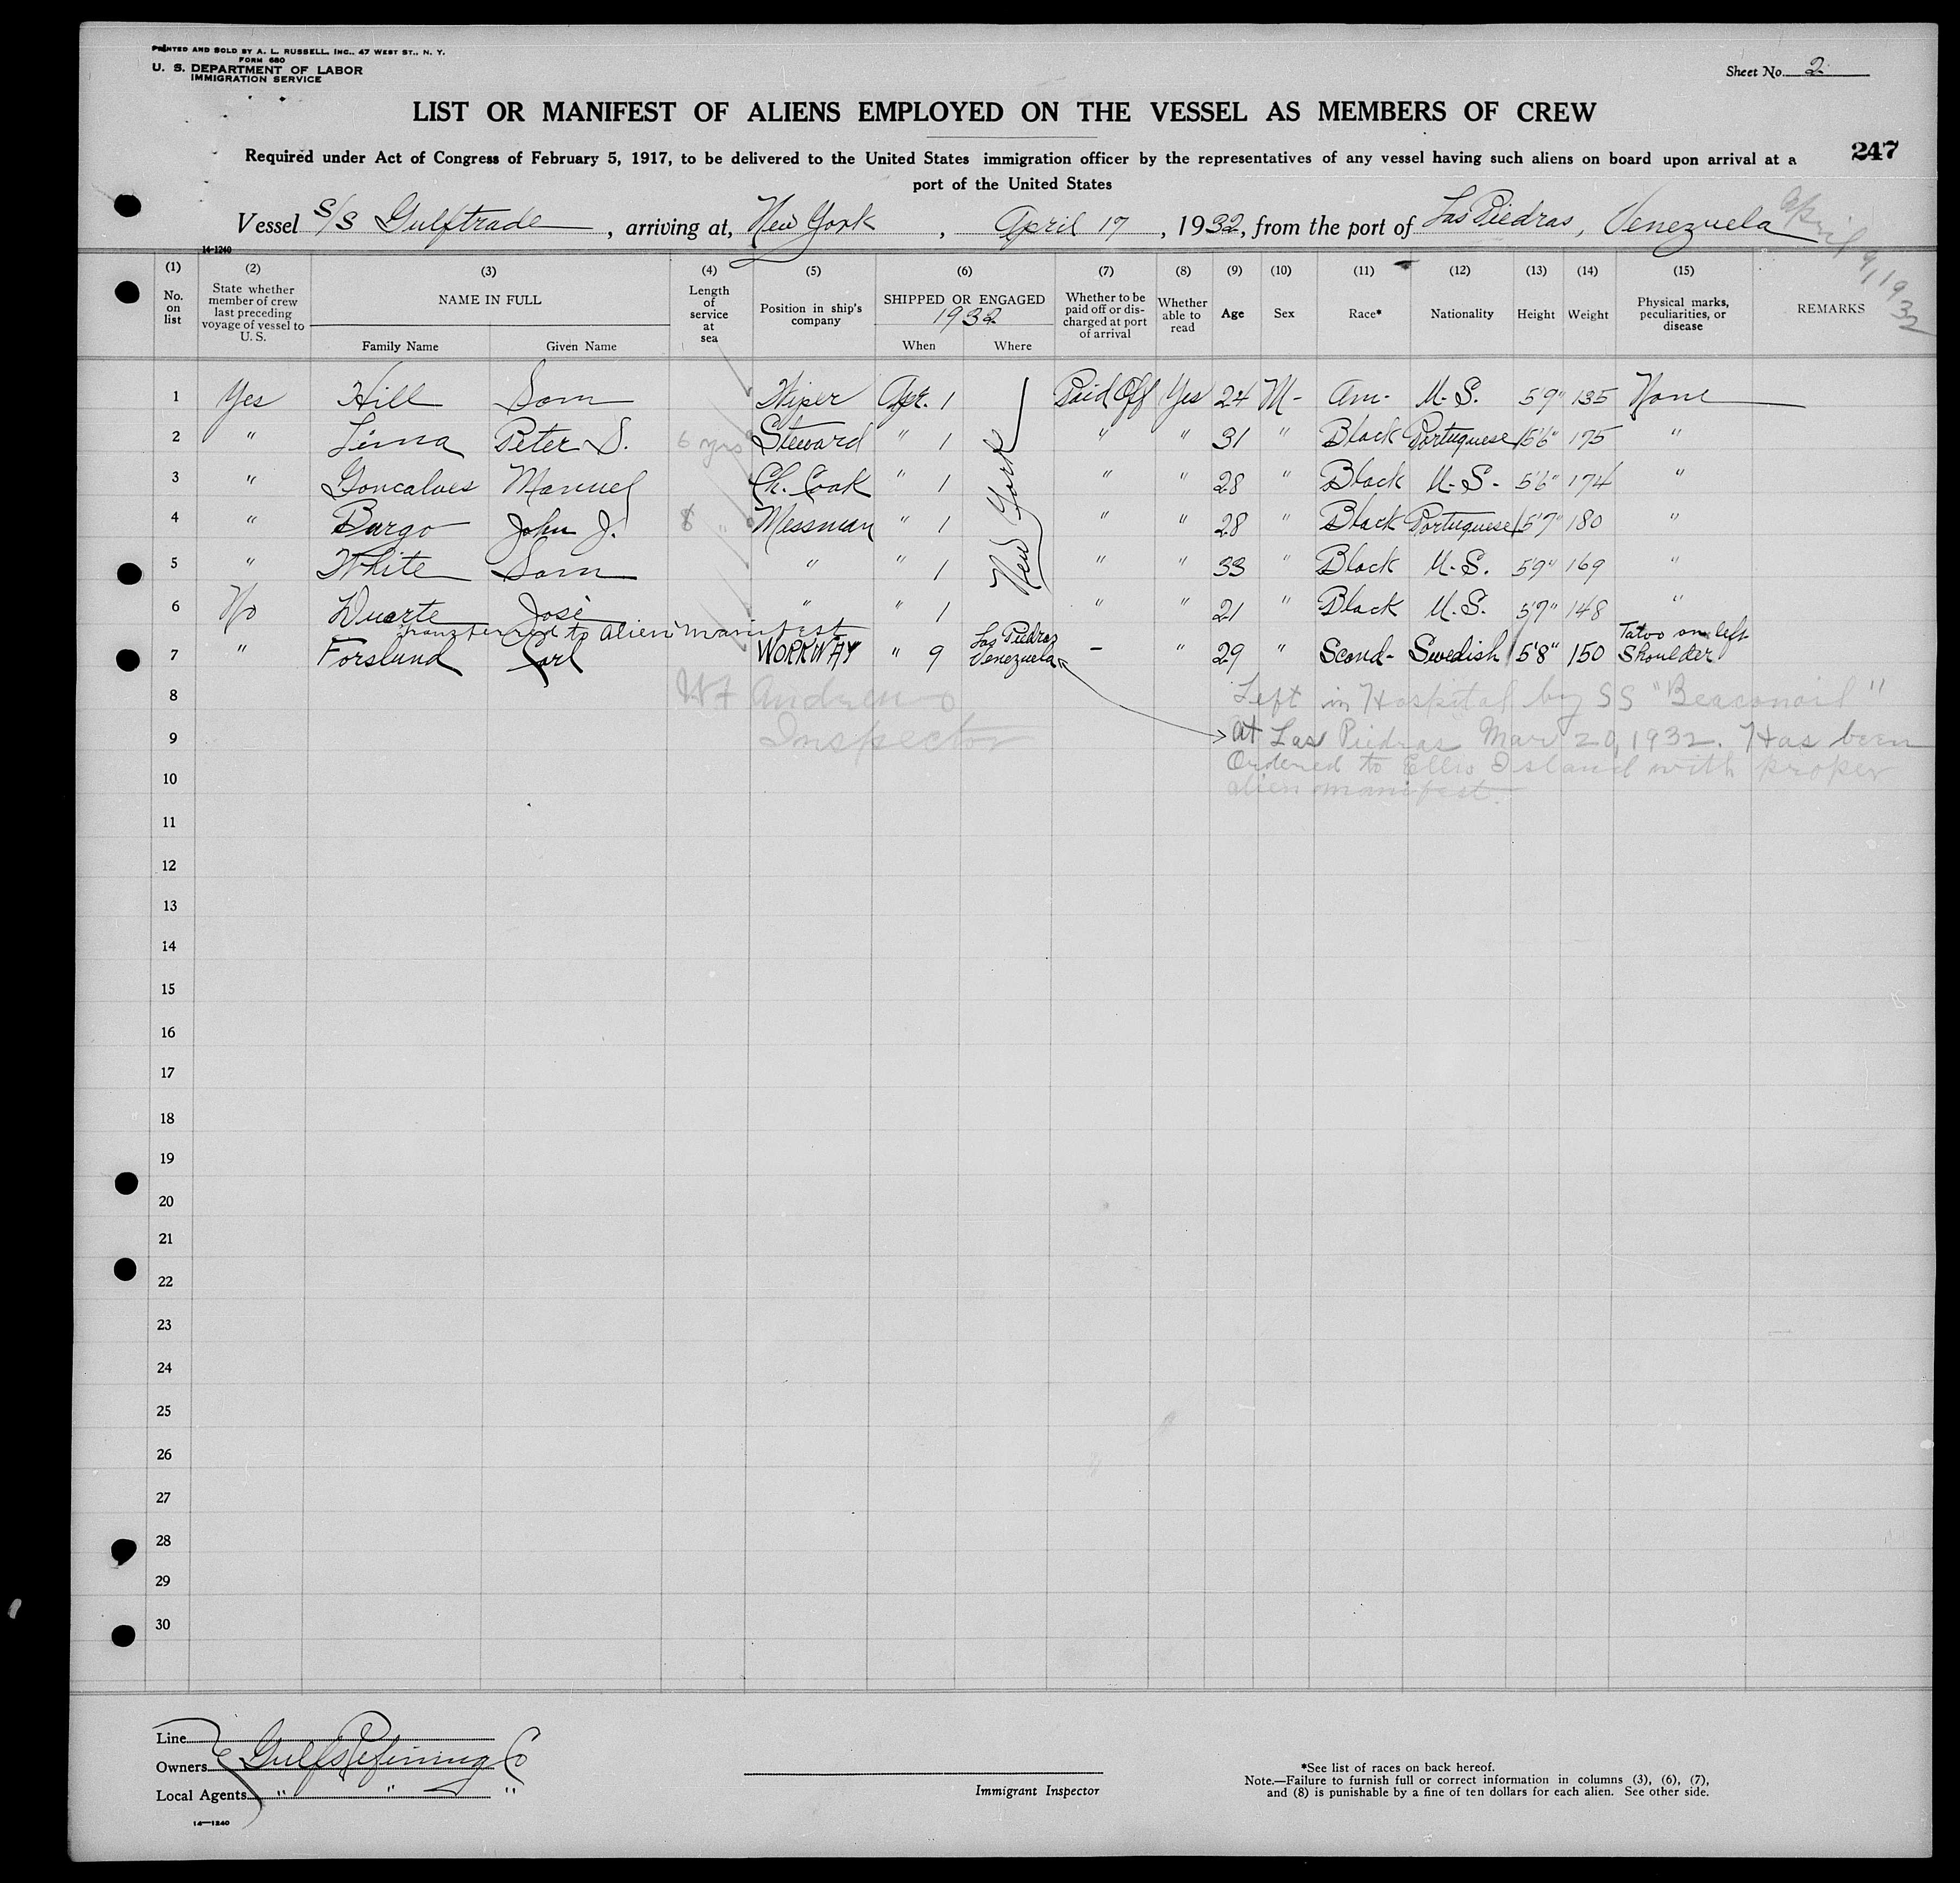 PRINTED AND SOLD BY A. L. RUSSELL, INC., 47 WEST ST., N. Y.
FORM 680
U. S. DEPARTMENT OF LABOR
IMMIGRATION SERVICE
Sheet No. 2
LIST OR MANIFEST OF ALIENS EMPLOYED ON THE VESSEL AS MEMBERS OF CREW
247
Required under Act of Congress of February 5, 1917, to be delivered to the United States immigration officer by the representatives of any vessel having such aliens on board upon arrival at a
port of the United States
Vessel S/S Gulftrade, arriving at, New York, April 17, 1932, from the port of Las Piedras, Venezuela
April 9, 1932
14-1240
(1) (2) (3) (4) (5) (6) (7) (8) (9) (10) (11) (12) (13) (14) (15)
No. on list
State whether member of crew last preceding voyage of vessel to U. S.
NAME IN FULL
Family Name Given Name
Length of service at sea
Position in ship's company
SHIPPED OR ENGAGED
1932
When Where
Whether to be paid off or discharged at port of arrival
Whether able to read
Age
Sex
Race*
Nationality
Height
Weight
Physical marks, peculiarities, or disease
REMARKS
1 Yes Hill Sam Wiper Apr. 1 New York Paid Off Yes 24 M- Am- U.S. 5'9" 135 None
2 " Lima Peter S. 6 yrs Steward " 1 " " 31 " Black Portuguese 5'6" 175 "
3 " Goncalves Manuel Ch. Cook " 1 " " 28 " Black U.S. 5'6" 174 "
4 " Burgo John J. 8 " Messman " 1 " " 28 " Black Portuguese 5'7" 180 "
5 " White Sam " " 1 " " 33 " Black U.S. 5'9" 169 "
6 No Duarte José " " 1 " " 21 " Black U.S. 5'7" 148 "
transferred to alien manifest
7 " Forslund Carl WORKWAY " 9 Las Piedras Venezuela - " 29 " Scand- Swedish 5'8" 150 Tatoo on left Shoulder
8 Andrews Left in Hospital by SS "Beaconoil"
9 Inspector at Las Piedras Mar 20, 1932. Has been
10 Ordered to Ellis Island with proper
alien manifest.
11
12
13
14
15
16
17
18
19
20
21
22
23
24
25
26
27
28
29
30
Line
Owners Gulf Refining Co
Local Agents " " "
14-1240
Immigrant Inspector
*See list of races on back hereof.
Note.—Failure to furnish full or correct information in columns (3), (6), (7),
and (8) is punishable by a fine of ten dollars for each alien. See other side.